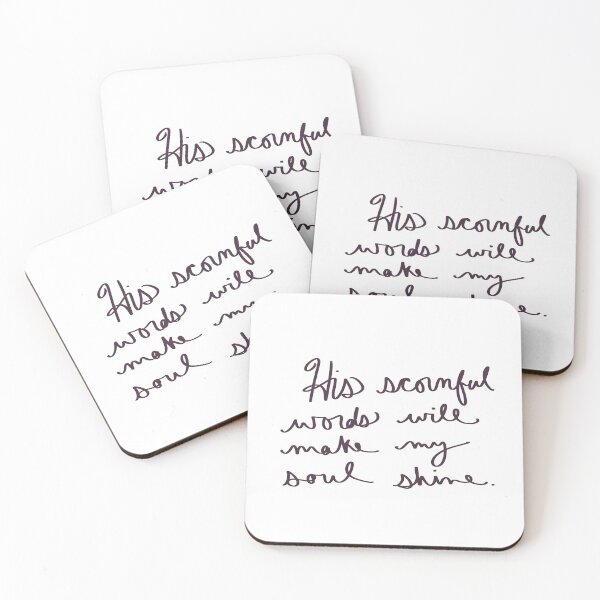 His scornful
words will
my
His scornful
words will
make my
soul
His scornful
words will
make my
soul sh
His scornful
words will
make my
soul shine.